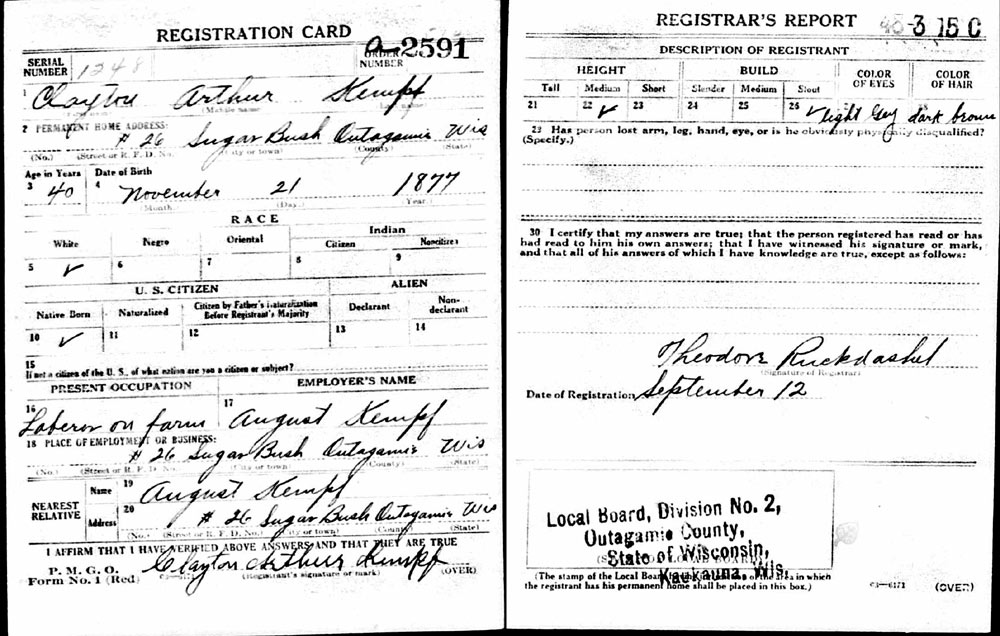 REGISTRATION CARD
SERIAL NUMBER 1248
ORDER NUMBER a-2591
1 Clayton Arthur Kempf
(Middle name)
2 PERMANENT HOME ADDRESS:
# 26 Sugar Bush Outagamie Wis
(No.) (Street or R. F. D. No.) (City or town) (County) (State)
Age in Years Date of Birth
3 40 4 November 21 1877
(Month.) (Day.) Year.
RACE
White Negro Oriental Indian
Citizen Noncitizen
5 ✓ 6 7 8 9
U. S. CITIZEN ALIEN
Native Born Naturalized Citizen by Father's Naturalization Before Registrant's Majority Declarant Non-declarant
10 ✓ 11 12 13 14
15
If not a citizen of the U. S., of what nation are you a citizen or subject?
PRESENT OCCUPATION EMPLOYER'S NAME
16 Laborer on farm 17 August Kempf
18 PLACE OF EMPLOYMENT OR BUSINESS:
# 26 Sugar Bush Outagamie Wis
(No.) (Street or R. F. D. No.) (City or town) (County) (State)
NEAREST RELATIVE Name 19 August Kempf
Address 20 # 26 Sugar Bush Outagamie Wis
(No.) (Street or R. F. D. No.) (City or town) (County) (State)
I AFFIRM THAT I HAVE VERIFIED ABOVE ANSWERS AND THAT THEY ARE TRUE
P. M. G. O.
Form No. 1 (Red) Clayton Arthur Kempf
(Registrant's signature or mark) (OVER)
REGISTRAR'S REPORT
3 15 C
DESCRIPTION OF REGISTRANT
HEIGHT BUILD COLOR OF EYES COLOR OF HAIR
Tall Medium Short Slender Medium Stout
21 22 ✓ 23 24 25 26 ✓ light Gey dark brown
29 Has person lost arm, leg, hand, eye, or is he obviously physically disqualified?
(Specify.)
30 I certify that my answers are true; that the person registered has read or has
had read to him his own answers; that I have witnessed his signature or mark,
and that all of his answers of which I have knowledge are true, except as follows:
Theodore Ruckdashel
(Signature of Registrar)
Date of Registration September 12
Local Board, Division No. 2,
Outagamie County,
State of Wisconsin,
Kaukauna, Wis.
(The stamp of the Local Board of the area in which
the registrant has his permanent home shall be placed in this box.)
c3-6171 (OVER)